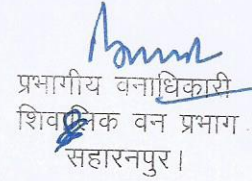 प्रभागीय वनाधिकारी
शिवालिक वन प्रभाग
सहारनपुर।